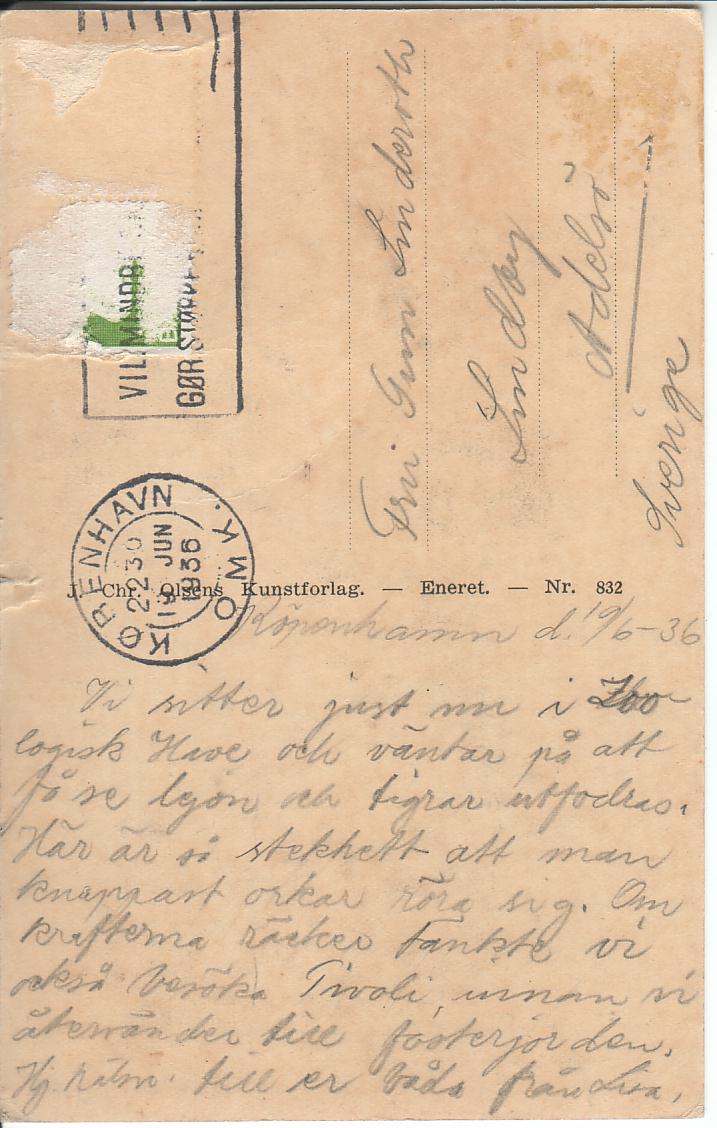 VIL MINDR
GØR STØRRE
KØBENHAVN
OMK.
2230
19 JUN
1936
Fru Gun Linderoth
Lindby
Adelsö
Sverige
J. Chr. Olsens Kunstforlag. — Eneret. — Nr. 832
Köpenhamn d. 19/6-36
Vi sitter just nu i Zoo-
logisk Have och väntar på att
få se lejon och tigrar utfodras.
Här är så stekhett att man
knappast orkar röra sig. Om
krafterna räcker tänkte vi
också besöka Tivoli, innan vi
återvänder till fosterjorden.
Hj. häls. till er båda från Lisa.